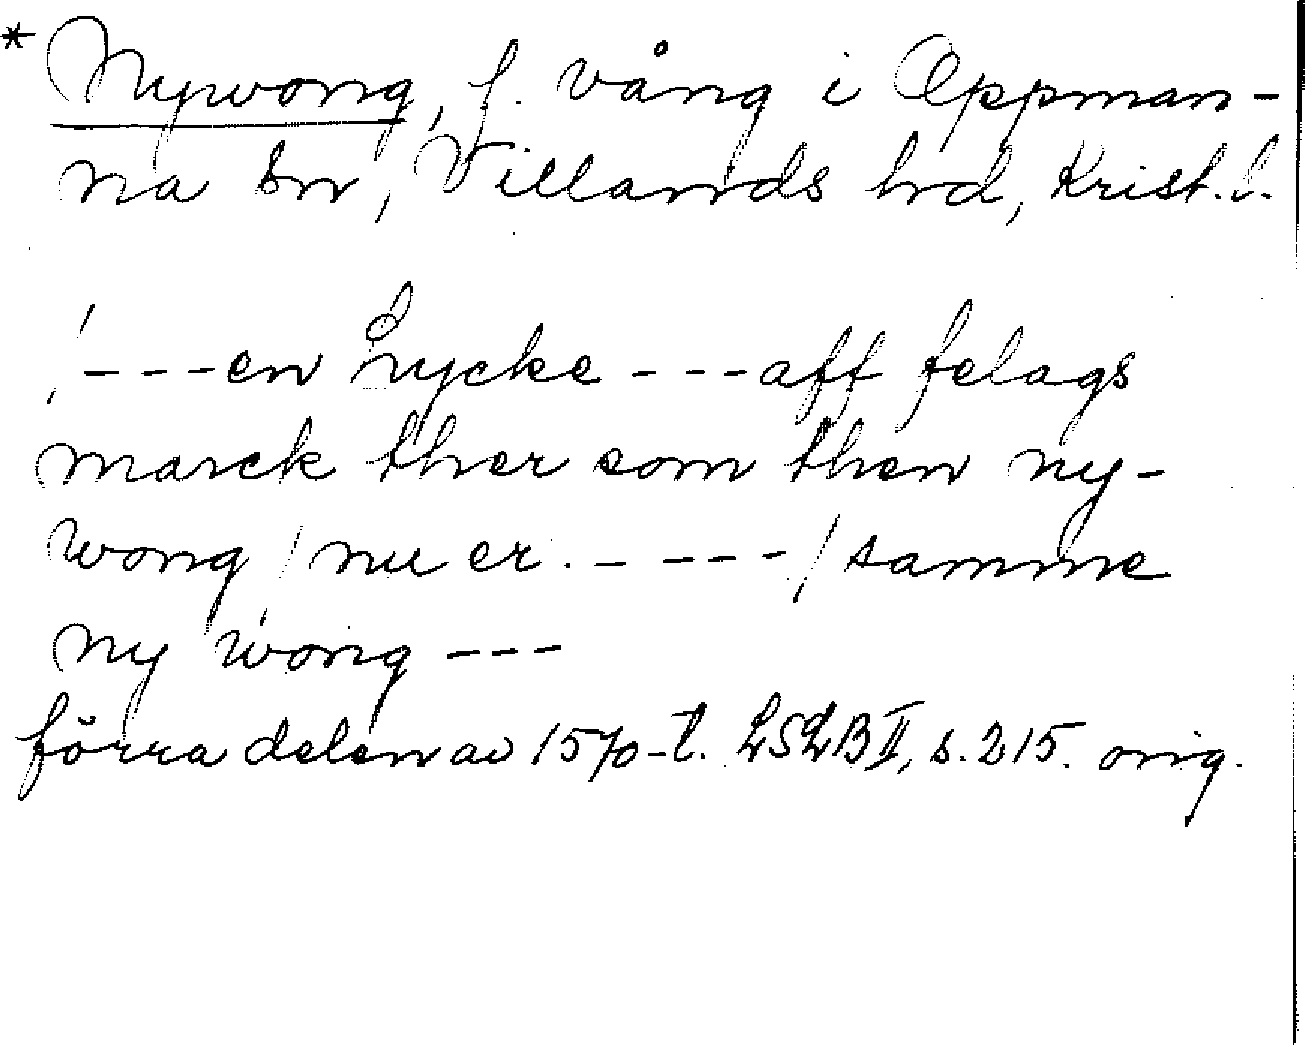 * Nywong, f. vång i Oppman-
na sn, Villands hd, Krist. l.
/---en lycke ---aff felags
marck ther som then ny-
wong / nu er. ----/ samme
ny wong ---
förra delen av 1570-t. LSLB II, s. 215. orig.